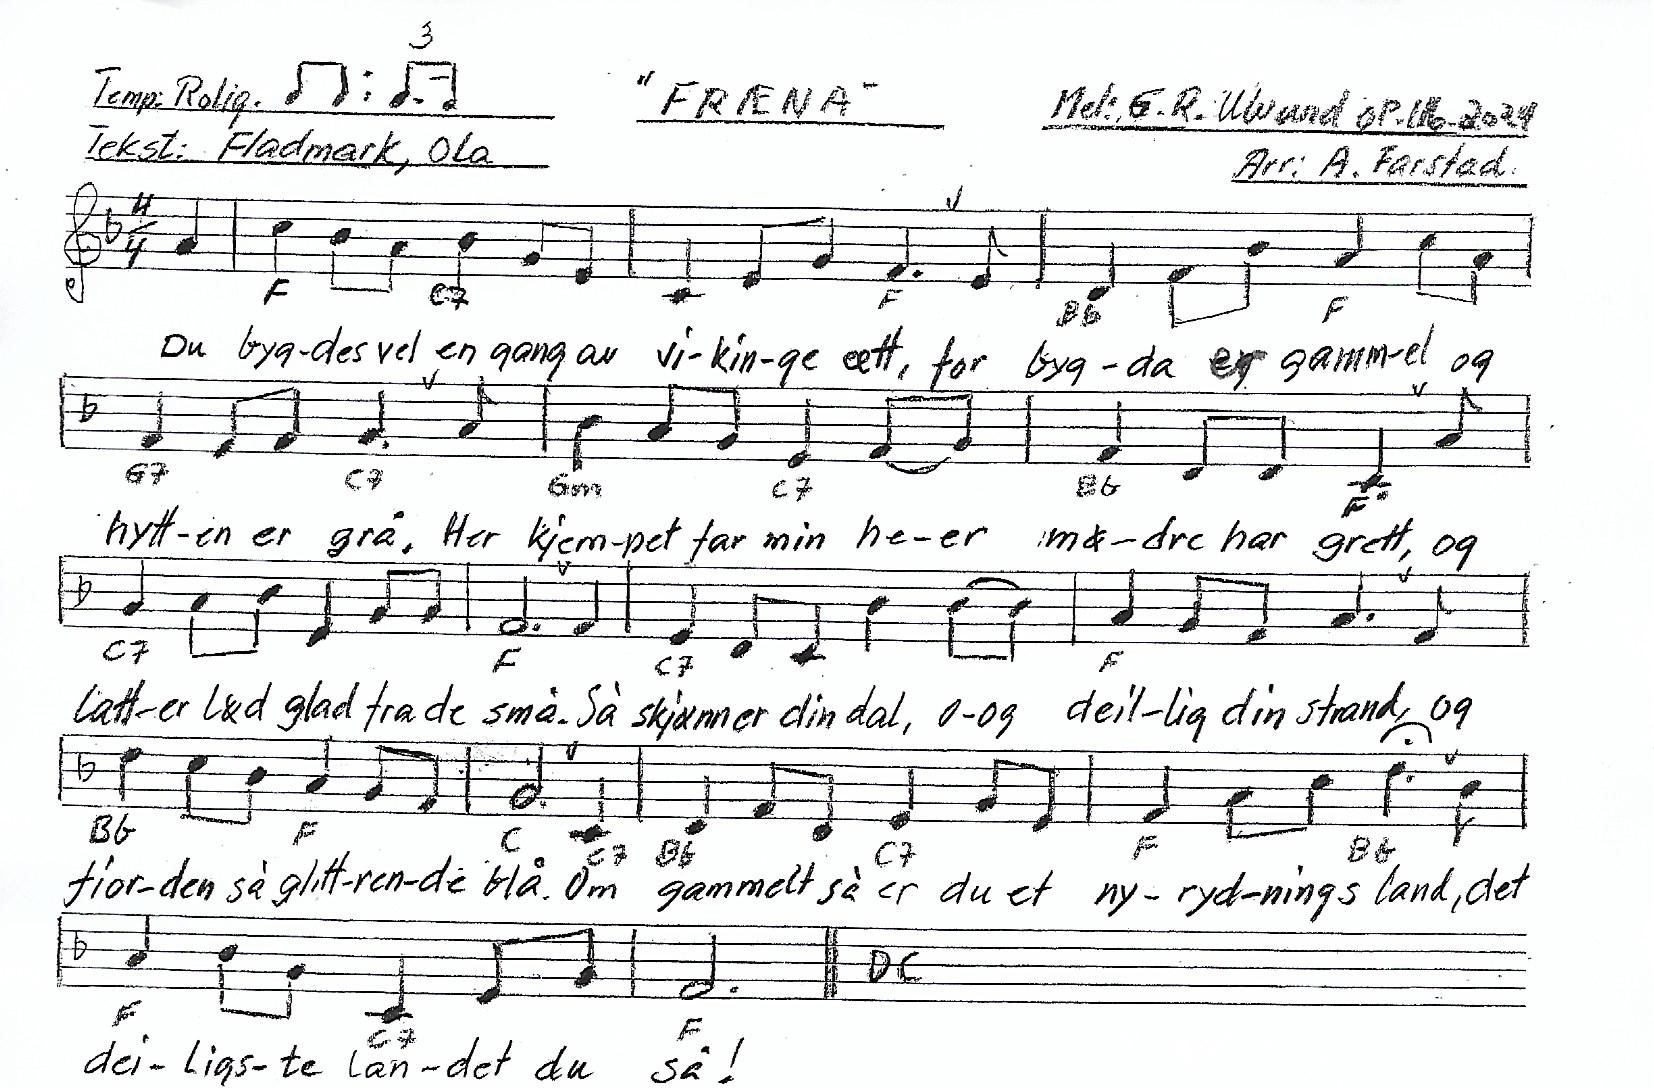 3
Temp: Rolig. "FRÆNA" Mel: G.R. Ulvund op.116-2024
Tekst: Fladmark, Ola Arr: A. Farstad.
4/4
F C7 F Bb F
Du byg-des vel en gang av vi-kin-ge ætt, for byg-da er gamm-el og
G7 C7 Gm C7 Bb F
hytt-en er grå. Her kjem-pet far min he-er mø-dre har grett, og
C7 F C7 F
latt-er lød glad fra de små. Så skjønner din dal, o-og deil-lig din strand, og
Bb F C C7 Bb C7 F Bb
fjor-den så glitt-ren-de blå. Om gammelt så er du et ny-ryd-nings land, det
F C7 F DC
dei-ligs-te lan-det du så!